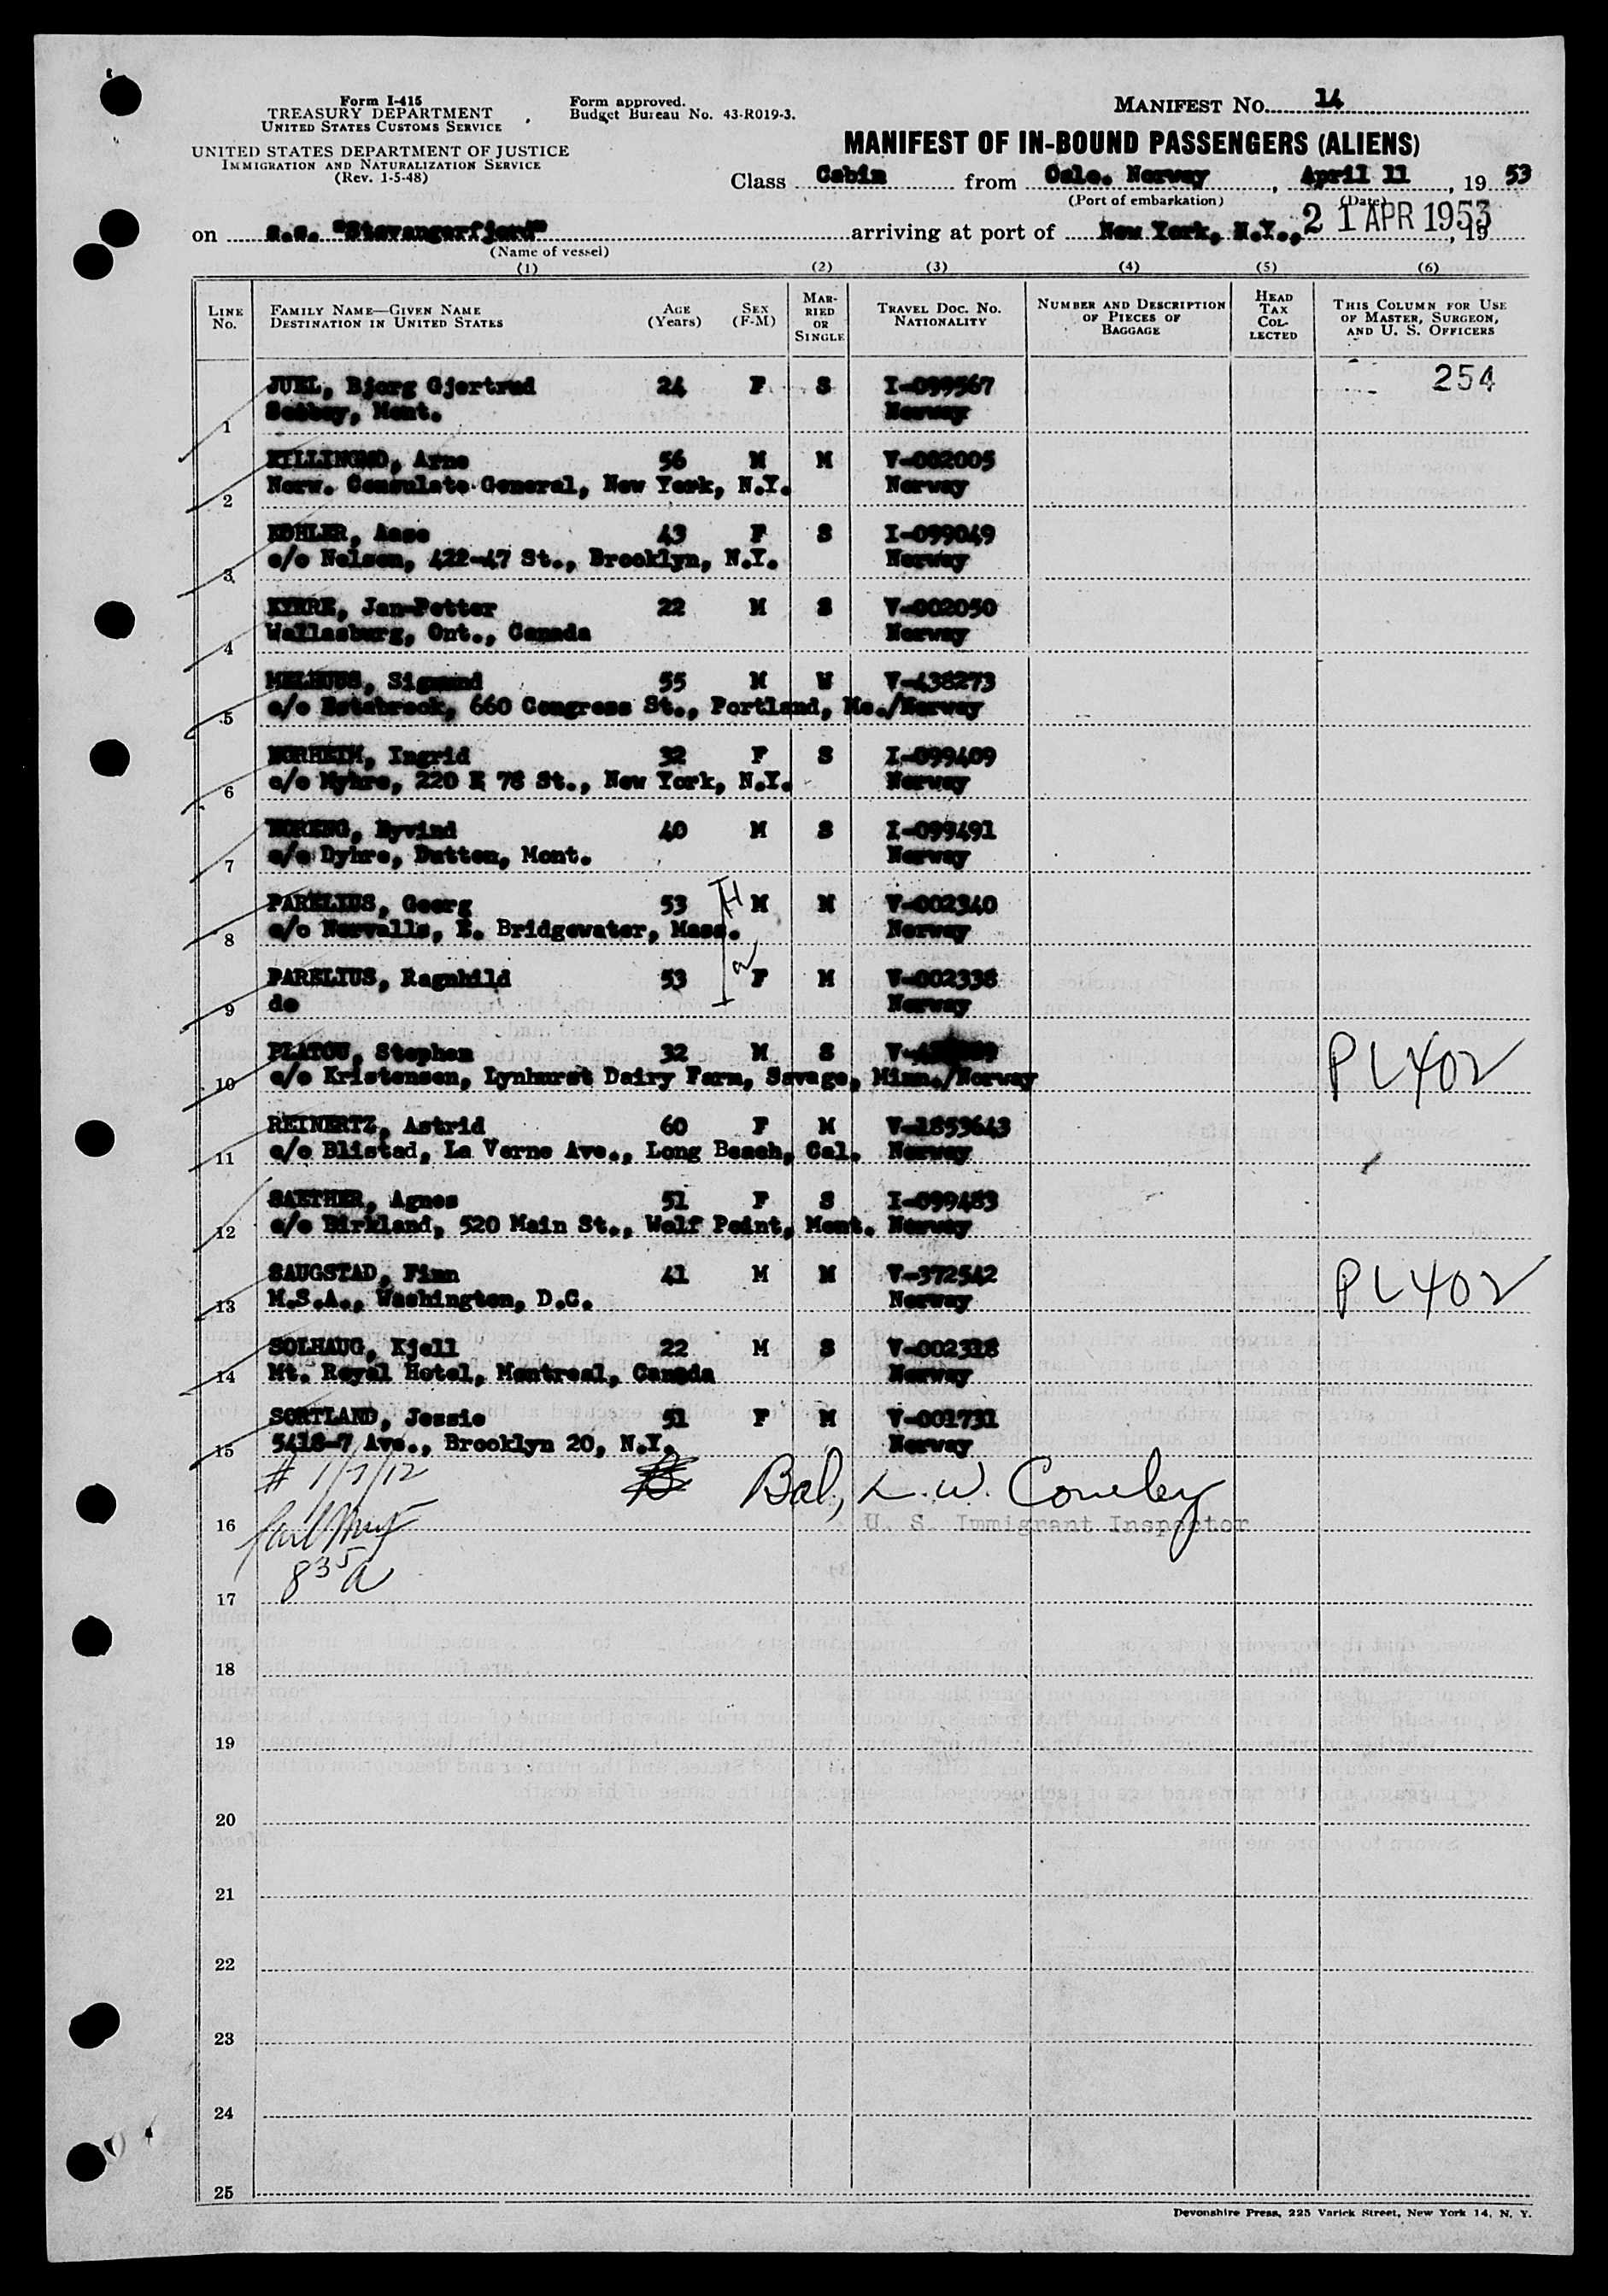 Form I-415
TREASURY DEPARTMENT
UNITED STATES CUSTOMS SERVICE
UNITED STATES DEPARTMENT OF JUSTICE
IMMIGRATION AND NATURALIZATION SERVICE
(Rev. 1-5-48)
Form approved.
Budget Bureau No. 43-R019-3.
MANIFEST No. 14
MANIFEST OF IN-BOUND PASSENGERS (ALIENS)
Class Cabin from Oslo. Norway, April 11, 19 53
(Port of embarkation) (Date)
on s.s. "Stavangerfjord" arriving at port of New York, N.Y., 21 APR 1953, 19
(Name of vessel)
(1) (2) (3) (4) (5) (6)
LINE No. FAMILY NAME—GIVEN NAME DESTINATION IN UNITED STATES AGE (Years) SEX (F-M) MARRIED OR SINGLE TRAVEL DOC. No. NATIONALITY NUMBER AND DESCRIPTION OF PIECES OF BAGGAGE HEAD TAX COLLECTED THIS COLUMN FOR USE OF MASTER, SURGEON, AND U. S. OFFICERS
JUEL, Bjorg Gjertrud 24 F S I-099567 254
1 Mont. Norway
Arne 56 M M V-002005
2 Norw. Consulate General, New York, N.Y. Norway
KOHLER, Aase 43 F S I-099049
3 c/o Nelson, 422-47 St., Brooklyn, N.Y. Norway
KYRRE, Jan-Petter 22 M S V-002050
4 Wallasburg, Ont., Canada Norway
MELHUUS, Sigmund 55 M W V-438273
5 c/o Estabrook, 660 Congress St., Portland, Me./Norway
NORHEIM, Ingrid 32 F S I-099409
6 c/o Myhre, 220 E 78 St., New York, N.Y. Norway
NORENG, Eyvind 40 M S I-099491
7 c/o Dyhre, Dutton, Mont. Norway
PARELIUS, Georg 53 H M M V-002340
8 c/o Norvalls, E. Bridgewater, Mass. Norway
PARELIUS, Ragnhild 53 W F M V-002338
9 do Norway
PLATOU, Stephen 32 M S PL 402
10 c/o Kristensen, Lynhurst Dairy Farm, Savage, Minn./Norway
REINERTZ, Astrid 60 F M V-1853643
11 c/o Blistad, La Verne Ave., Long Beach, Cal. Norway
SAETHER, Agnes 51 F S I-099483
12 c/o Birkland, 520 Main St., Wolf Point, Mont. Norway
SAUGSTAD, Finn 41 M M V-372542 PL 402
13 M.S.A., Washington, D.C. Norway
SOLHAUG, Kjell 22 M S V-002318
14 Mt. Royal Hotel, Montreal, Canada Norway
SORTLAND, Jessie 51 F M V-001731
15 5418-7 Ave., Brooklyn 20, N.Y. Norway
# 1/7/12 Bal, L. W.
16 U. S. Immigrant Inspector
8 35 a
17
18
19
20
21
22
23
24
25
Devonshire Press, 225 Varick Street, New York 14, N. Y.